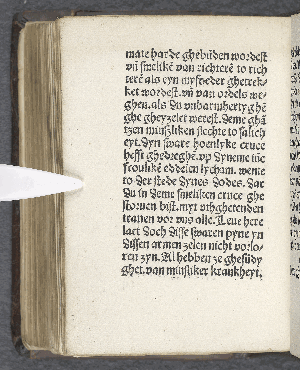 mate harde ghebůden wordest
vñ smelikē van richterē to rich
terē als eyn myßdeder ghetrek-
ket wordest. vñ van ordels we-
ghen. als du unbarmherty ghē
ghe gheyzelet werest. deme ghā
tzen mīnßliken slechte to salich
eyt. dyn sware hoenlyke cruce
hefft ghedreghē. vp dyneme
eddelen lycham. wente
to der stede dynes dodes. dar
du in deme smeliken cruce ghe
storuen bist. myt uthghetenden
tranen vor uns alle. Leue here
laet doch disse swaren pyne yn
dissen armen zelen nicht vorlo-
ren zyn. Al hebben ze ghesůdy
ghet. van minsliker krankheyt,